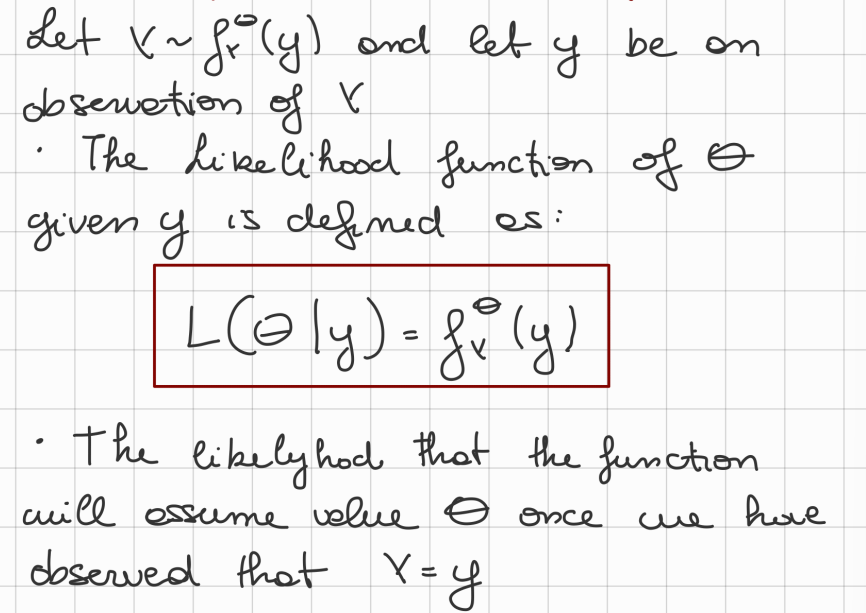 Let Y ~ f_Y^θ(y) and let y be an
observation of Y
· The Likelihood function of θ
given y is defined as:
L(θ|y) = f_Y^θ(y)
· The likelyhod that the function
will assume value θ once we have
observed that Y = y